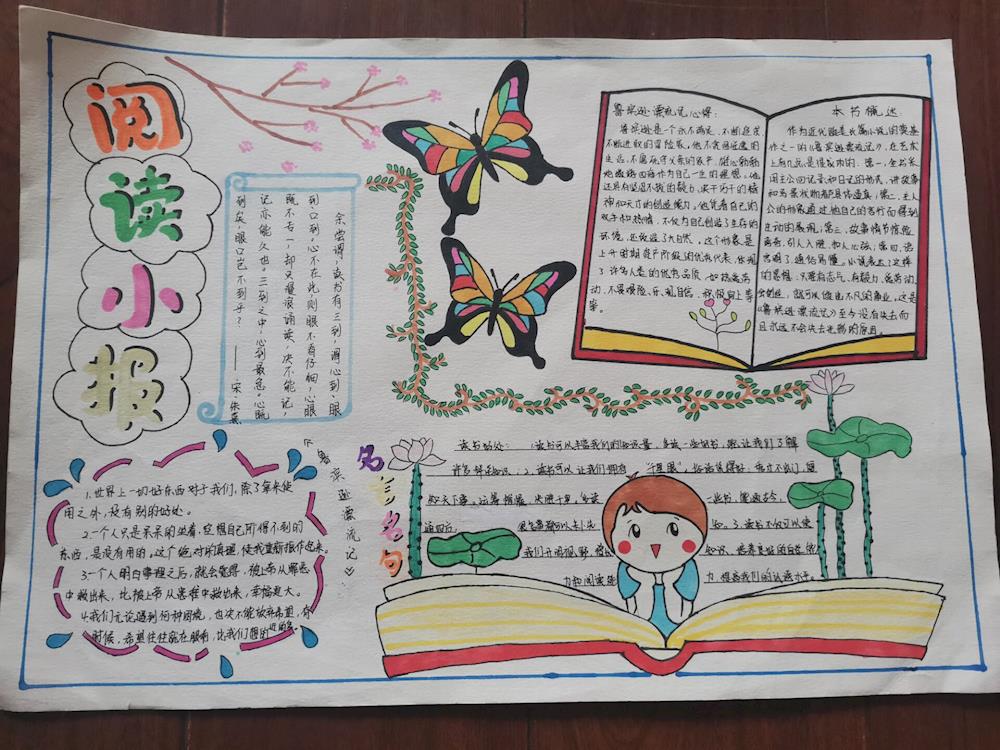 阅读小报
余尝谓，读书有三到，谓心到、眼
到、口到。心不在此，则眼不看仔细，心眼
既不专一，却只漫浪诵读，决不能记，
记亦不能久也。三到之中，心到最急。心既
到矣，眼口岂不到乎？
——宋·朱熹
鲁宾逊漂流记心得：
鲁宾逊是个永不满足、不断追求
不断进取的冒险家。他不贪图安逸的
生活
他凭着自己的
双手和热情，不仅为自己创造了生存的
环境，还改造了大自然，这个形象是
上升时期资产阶级的优秀代表，体现
了许多人类的优秀品质，如热爱劳
动、不畏艰险、乐观自信、积极向上等
等。
本书概述：
作为近代欧美长篇小说的奠基
作之一的《鲁宾逊漂流记》，在艺术
上有几点是很成功的。第一，全书采
用主人公回忆录和日记的形式，讲故事
和写景状物都具体逼真；第二，主人
公的形象通过他自己的言行而得到
生动的表现；第三，故事情节惊险
离奇，引人入胜，扣人心弦；第四，语
言明了、通俗易懂。小说表达了这样
的思想：只要有志气、有毅力、爱劳动、
会创造，就可以做出不凡的事业，这是
《鲁宾逊漂流记》至今没有失去而
且永远不会失去光彩的原因。
《鲁宾逊漂流记》
名言名句
1.世界上一切好东西对于我们，除了拿来使
用之外，没有别的好处。
2.一个人只是呆呆的坐着，空想自己所得不到的
东西，是没有用的，这个绝对的真理，使我重新振作起来。
3.一个人明白事理之后，就会觉得，被上帝从罪恶
中救出来，比被上帝从患难中救出来，幸福更大。
4.我们无论遇到何种困境，也决不能放弃希望，有
时候，希望往往就在眼前，比我们想的近的多。
读书好处：1.读书可以丰富我们的知识量，多读一些好书，能让我们了解
许多科学知识；2.读书可以让我们拥有“千里眼”。俗话说得好：秀才不出门，便
知天下事。运筹帷幄，决胜千里。多读一些书，能通古今，
通四方，很多事都可以未卜先知。3.读书不仅可以使
我们开阔视野，增长知识，培养良好的自学能
力和阅读能力，提高我们的认读水平。